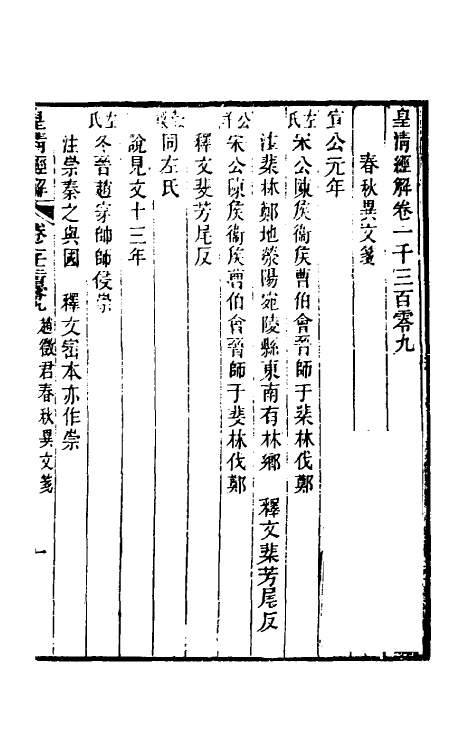 皇清經解卷一千三百零九
春秋異文箋
宣公元年
左氏 宋公陳矦衞矦曹伯會晉師于棐林伐鄭
注棐林鄭地滎陽宛陵縣東南有林鄉 釋文棐芳尾反
公羊 宋公陳矦衞矦曹伯會晉師于斐林伐鄭
釋文斐芳尾反
同左氏
說見文十三年
左氏 冬晉趙穿帥師侵崇
注崇秦之與國 釋文崈本亦作崇
皇清經解 趙徵君春秋異文箋 一